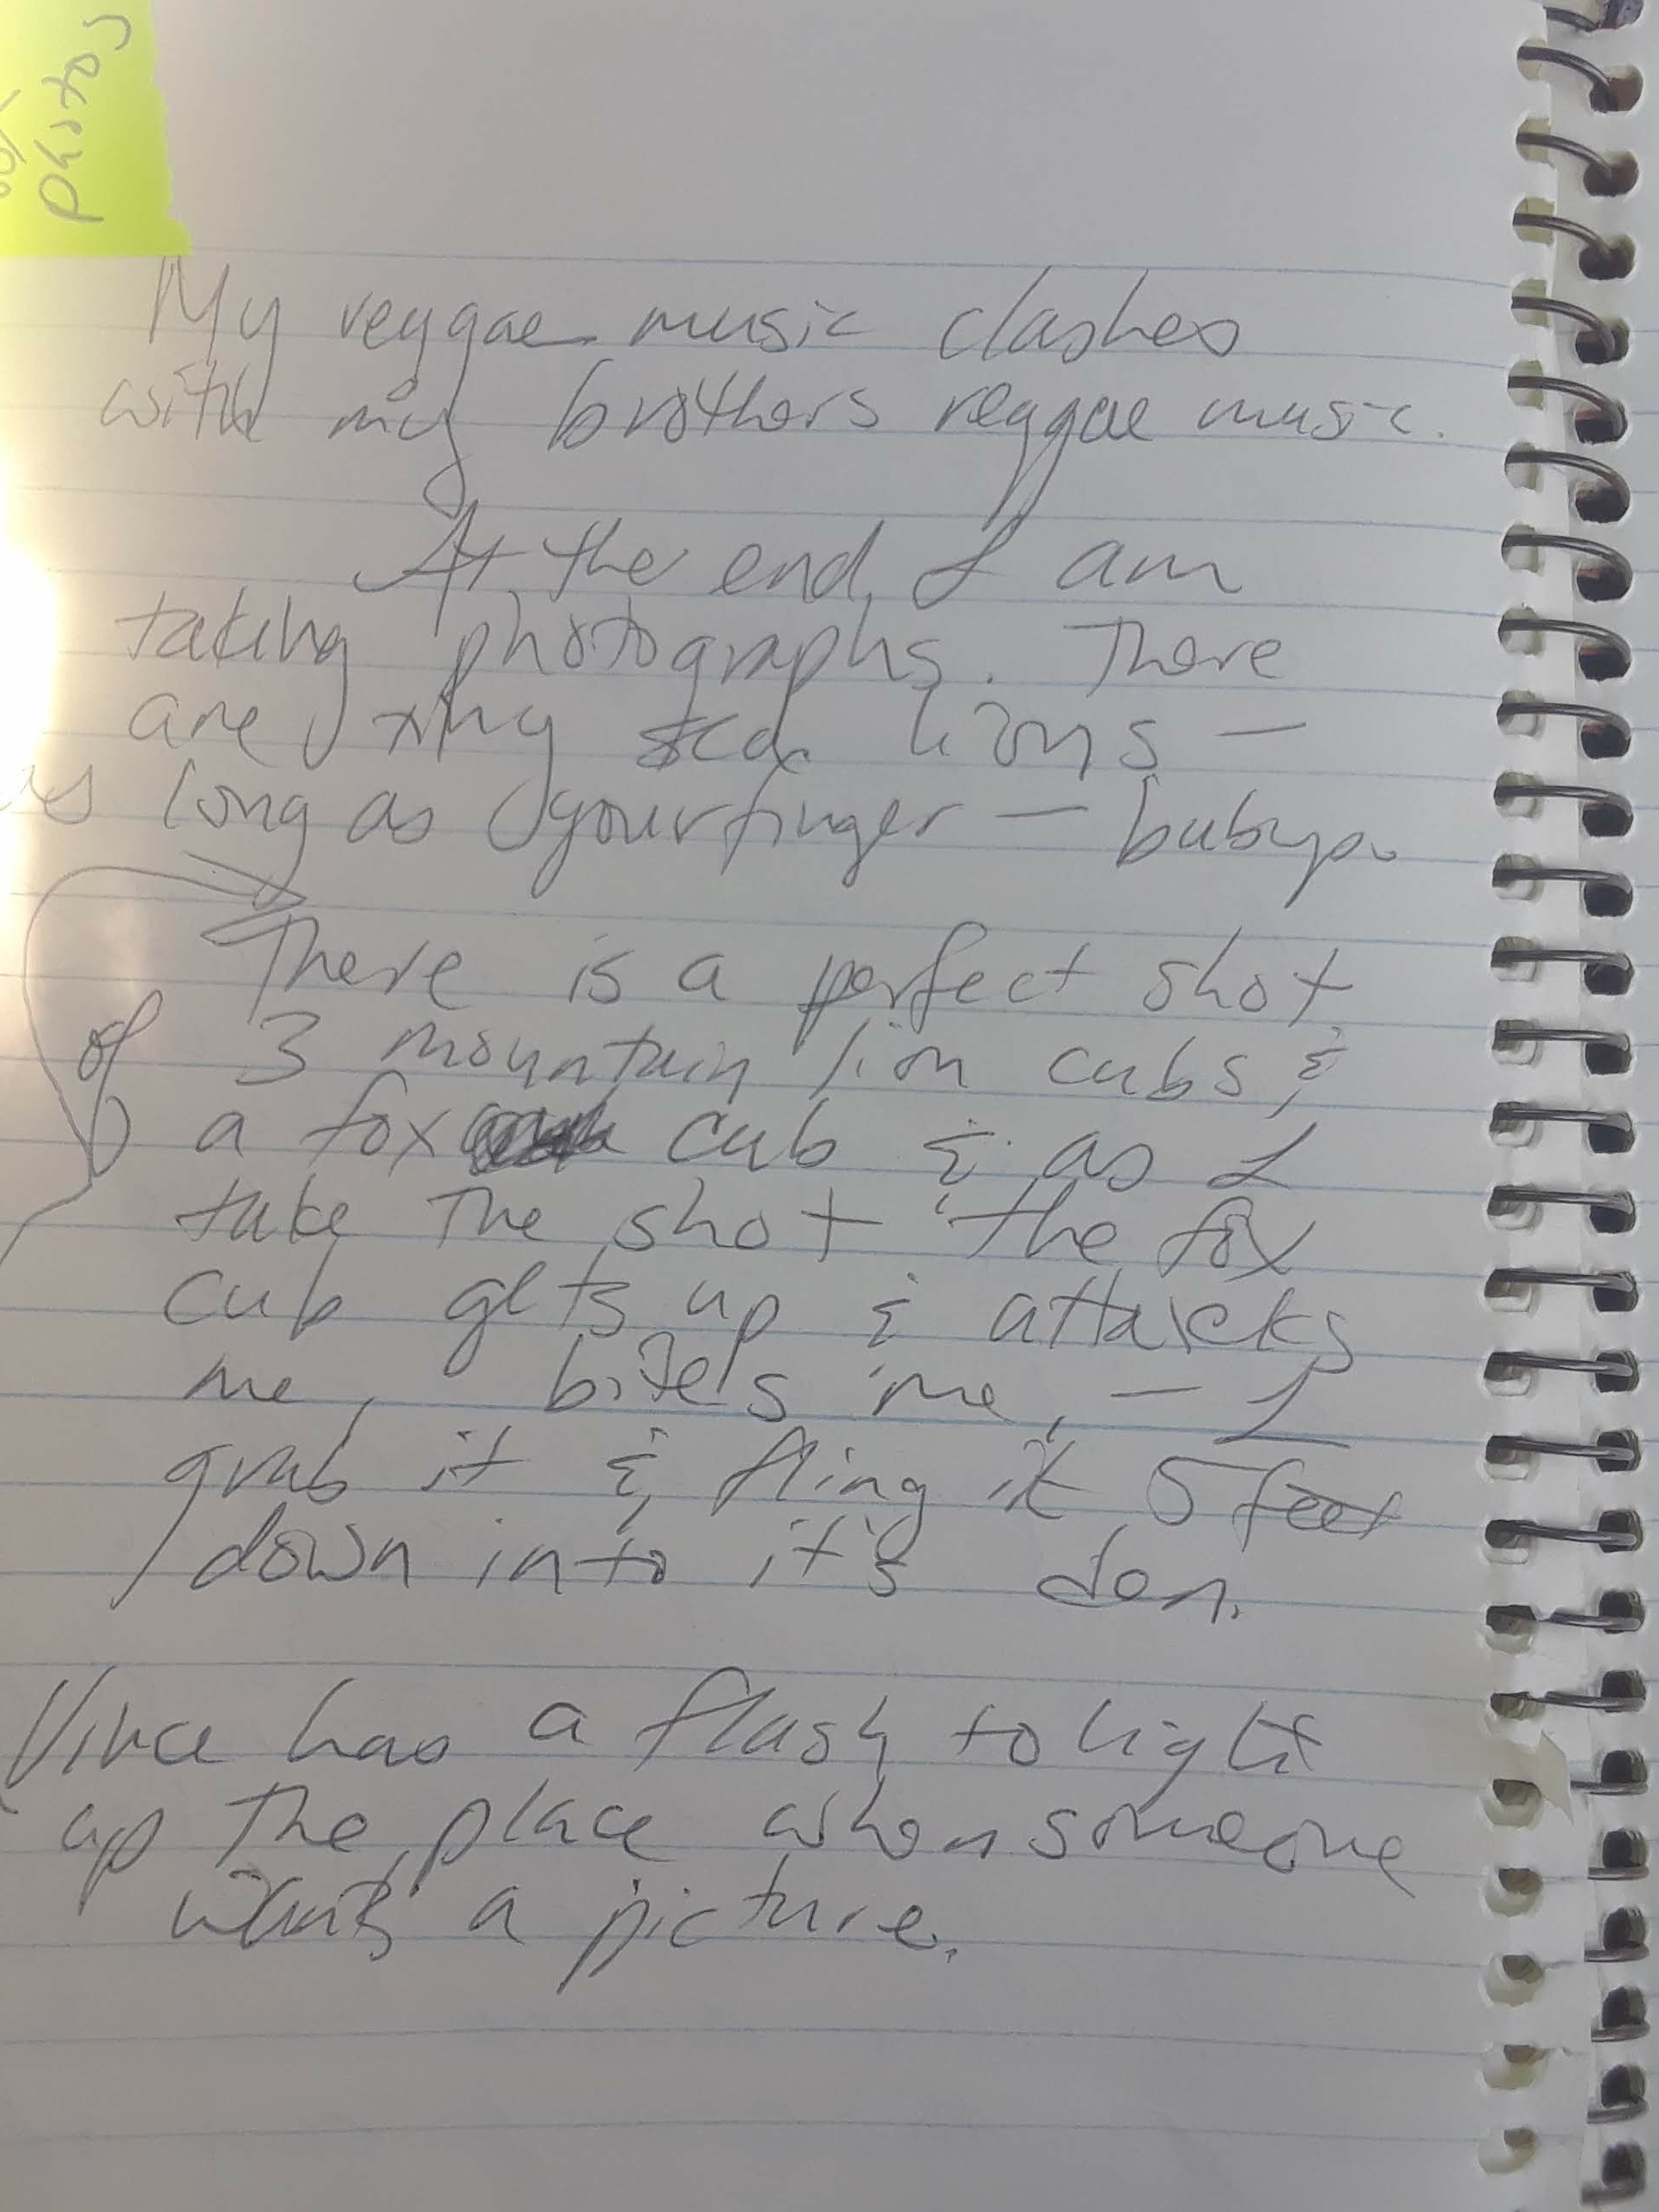 photos
My reggae music clashes
with my brothers reggae music.
At the end, I am
taking photographs. There
are tiny sea lions –
as long as your finger – babys.
There is a perfect shot
of 3 mountain lion cubs &
a fox cub & as I
take the shot the fox
cub gets up & attacks
me, bites me, – I
grab it & fling it 5 feet
down into it's den.
Vince has a flash to light
up the place when someone
wants a picture.